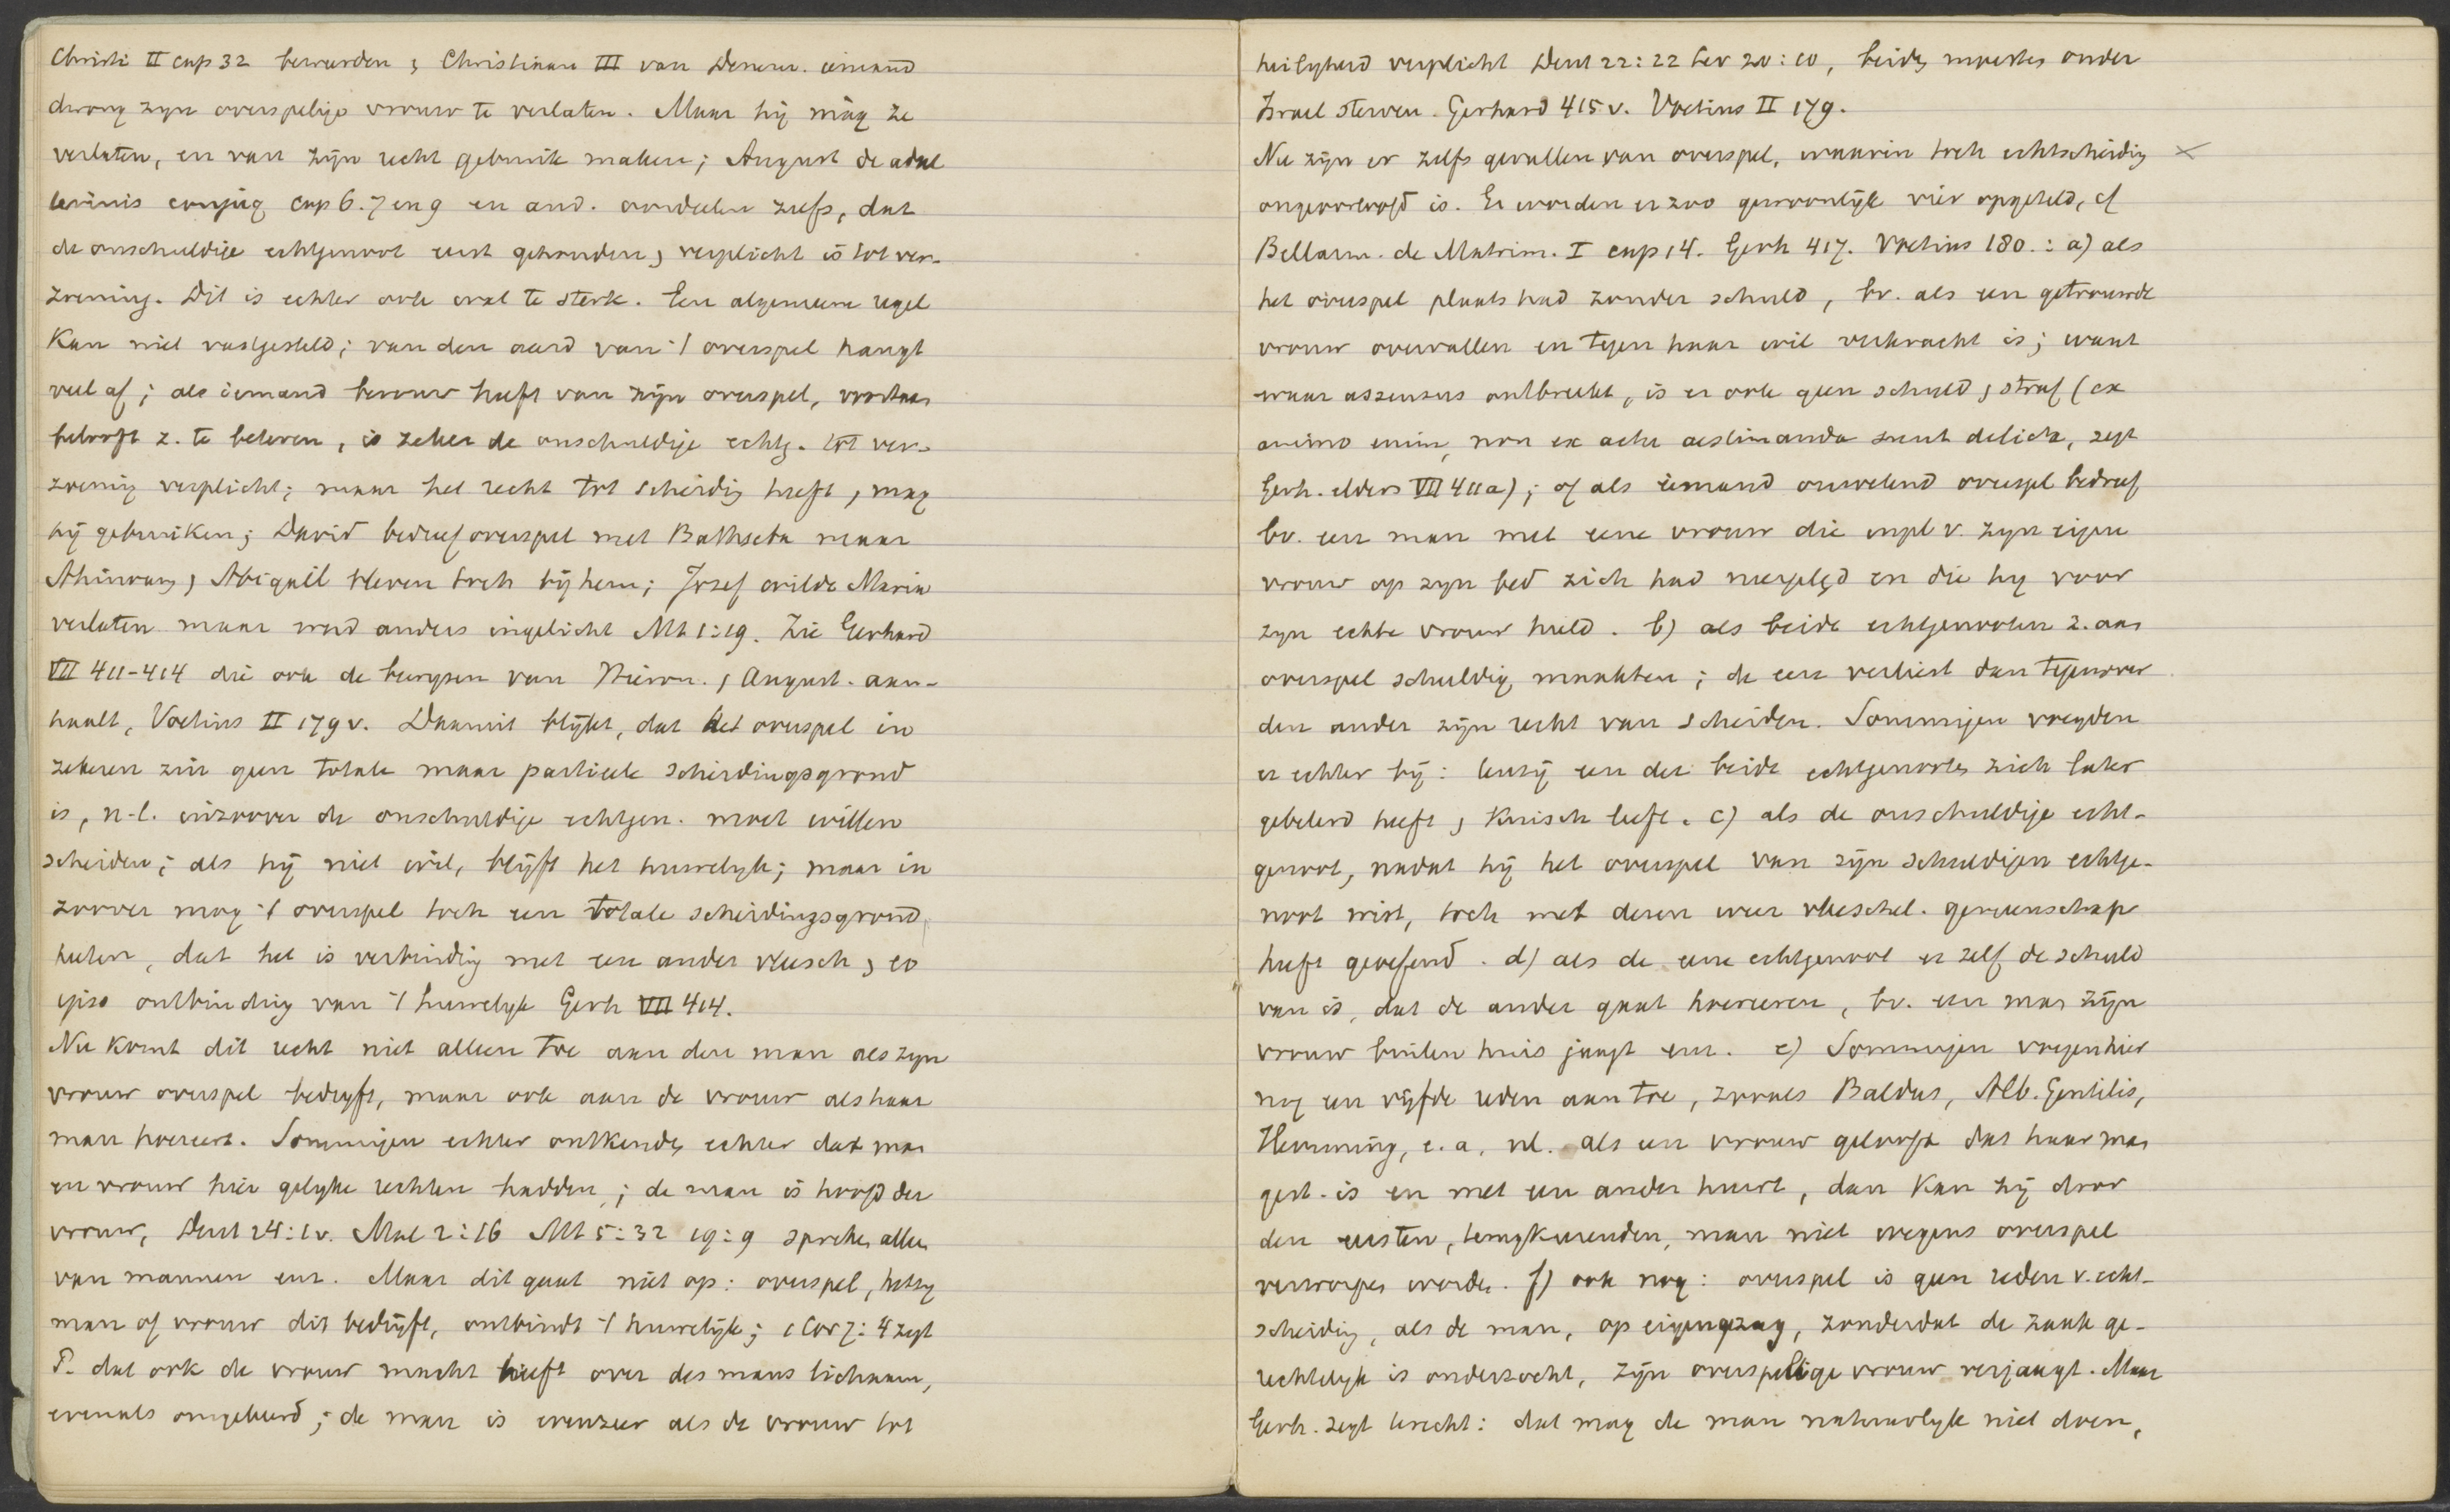 Christi II cap 32 beweerden & Christiaan III van Denem. iemand
dwong zijn overspelige vrouw te verlaten. Maar hij màg ze
verlaten, en van zijn recht gebruik maken; August de adul
terinis conjug cap 6. 7 en 9 en and. oordeelen zelfs, dat
de onschuldige echtgenoot eerst gehouden & verplicht is tot ver-
zoening. Dit is echter ook wat te sterk. Een algemeene regel
kan niet vastgesteld; van den aard van 't overspel hangt
veel af; als iemand berouw heeft van zijn overspel, voortaan
belooft z. te beteren, is zeker de onschuldige echtg. tot ver-
zoening verplicht; maar het recht tot scheidig heeft, mag
hij gebruiken; David bedreef overspel met Bathseba maar
Ahinoam & Abigaïl bleven toch bij hem; Josef wilde Maria
verlaten maar werd anders ingelicht Mt 1:19. Zie Gerhard
VII 411-414 die ook de bewijzen van Hieron. & August. aan-
haalt, Voetius II 179 v. Daaruit blijkt, dat het overspel in
zekeren zin geen totale maar partieele scheidingsgrond
is, n.l. inzoover de onschuldige echtgen. moet willen
scheiden; als hij niet wil, blijft het huwelijk; maar in
zoover mag 't overspel toch een totale scheidingsgrond
heeten, dat het is verbindig met een ander vleesch & eo
ipso ontbinding van 't huwelijk Gerh VII 414.
Nu komt dit recht niet alleen toe aan den man als zijn
vrouw overspel bedrijft, maar ook aan de vrouw als haar
man hoereert. Sommigen echter ontkenden echter dat man
en vrouw hier gelijke rechten hadden; de man is hoofd der
vrouw, Deut 24:1 v. Mal 2:16 Mt 5:32 19:9 spreken alleen
van mannen enz. Maar dit gaat niet op: overspel, hetzij
man of vrouw dit bedrijft, ontbindt 't huwelijk; 1 Cor 7:4 zegt
P. dat ook de vrouw macht heeft over des mans lichaam,
evenals omgekeerd; de man is evenzeer als de vrouw tot
heiligheid verplicht Deut 22:22 Lev 20:10, beiden moesten onder
Israel sterven. Gerhard 415 v. Voetius II 179.
Nu zijn er zelfs gevallen van overspel, waarin toch echtscheidig
ongeoorloofd is. Er worden er zoo gewoonlijk vier opgeteld, cf
Bellarm. de Matrim. I cap 14. Gerh 417. Voetius 180.: a) als
het overspel plaats had zonder schuld, bv. als een getrouwde
vrouw overvallen en tegen haar wil verkracht is; want
waar assensus ontbreekt, is er ook geen schuld & straf (ex
animo enim, non ex actu aestimanda sunt delicta, zegt
Gerh. elders VII 411a); of als iemand onwetend overspel bedreef
bv. een man met eene vrouw die inpl v. zijn eigen
vrouw op zijn bed zich had neergelegd en die hij voor
zijn echte vrouw hield. b) als beide echtgenooten z. aan
overspel schuldig maakten; de een verliest dan tegenover
den ander zijn recht van scheiden. Sommigen voegden
er echter bij: tenzij een der beide echtgenooten zich later
gebeterd heeft & kuisch leeft. c) als de onschuldige echt-
genoot, nadat hij het overspel van zijn schuldigen echtge-
noot wist, toch met dezen weer vleeschel. gemeenschap
heeft geoefend. d) als de eene echtgenoot er zelf de schuld
van is, dat de ander gaat hoereren, bv. een man zijn
vrouw buiten huis jaagt enz. e) Sommigen voegen hier
nog een vijfde reden aan toe, zooals Baldus, Alb. Gentilis,
Hemming, e.a, nl. als een vrouw gelooft dat haar man
gest. is en met een ander huwt, dan kan zij door
den eersten, terugkeerenden, man niet wegens overspel
verworpen worden. f) ook nog: overspel is geen reden v. echt-
scheidig, als de man, op eigen gezag, zonder dat de zaak ge-
rechtelijk is onderzocht, zijn overspelige vrouw verjaagt. Maar
Gerh. zegt terecht: dat mag de man natuurlijk niet doen,